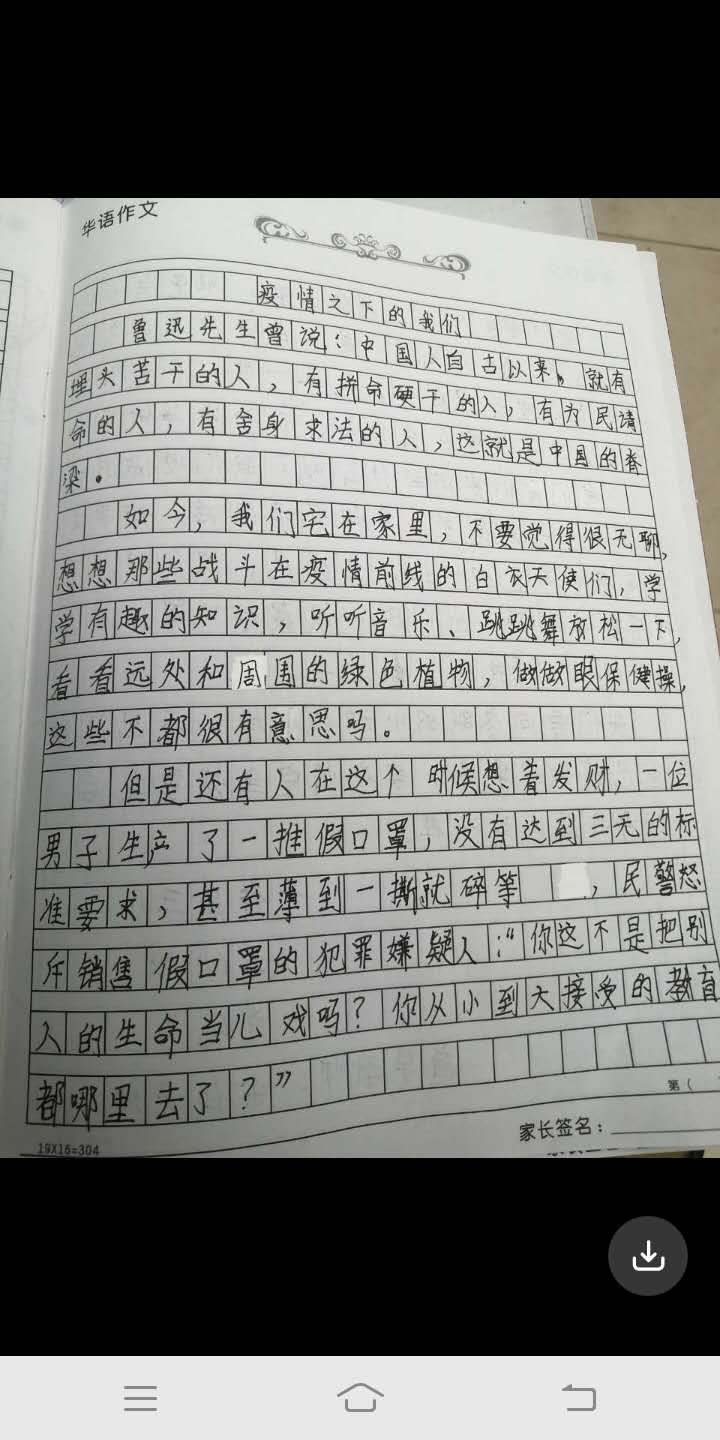 华语作文
疫情之下的我们
鲁迅先生曾说：中国人自古以来，就有
埋头苦干的人，有拼命硬干的人，有为民请
命的人，有舍身求法的人，这就是中国的脊
梁。
如今，我们宅在家里，不要觉得很无聊，
想想那些战斗在疫情前线的白衣天使们，学
学有趣的知识，听听音乐、跳跳舞放松一下，
看看远处和周围的绿色植物，做做眼保健操，
这些不都很有意思吗。
但是还有人在这个时候想着发财，一位
男子生产了一推假口罩，没有达到三无的标
准要求，甚至薄到一撕就碎等，民警怒
斥销售假口罩的犯罪嫌疑人：“你这不是把别
人的生命当儿戏吗？你从小到大接受的教育
都哪里去了？”
第（
19X16=304
家长签名：